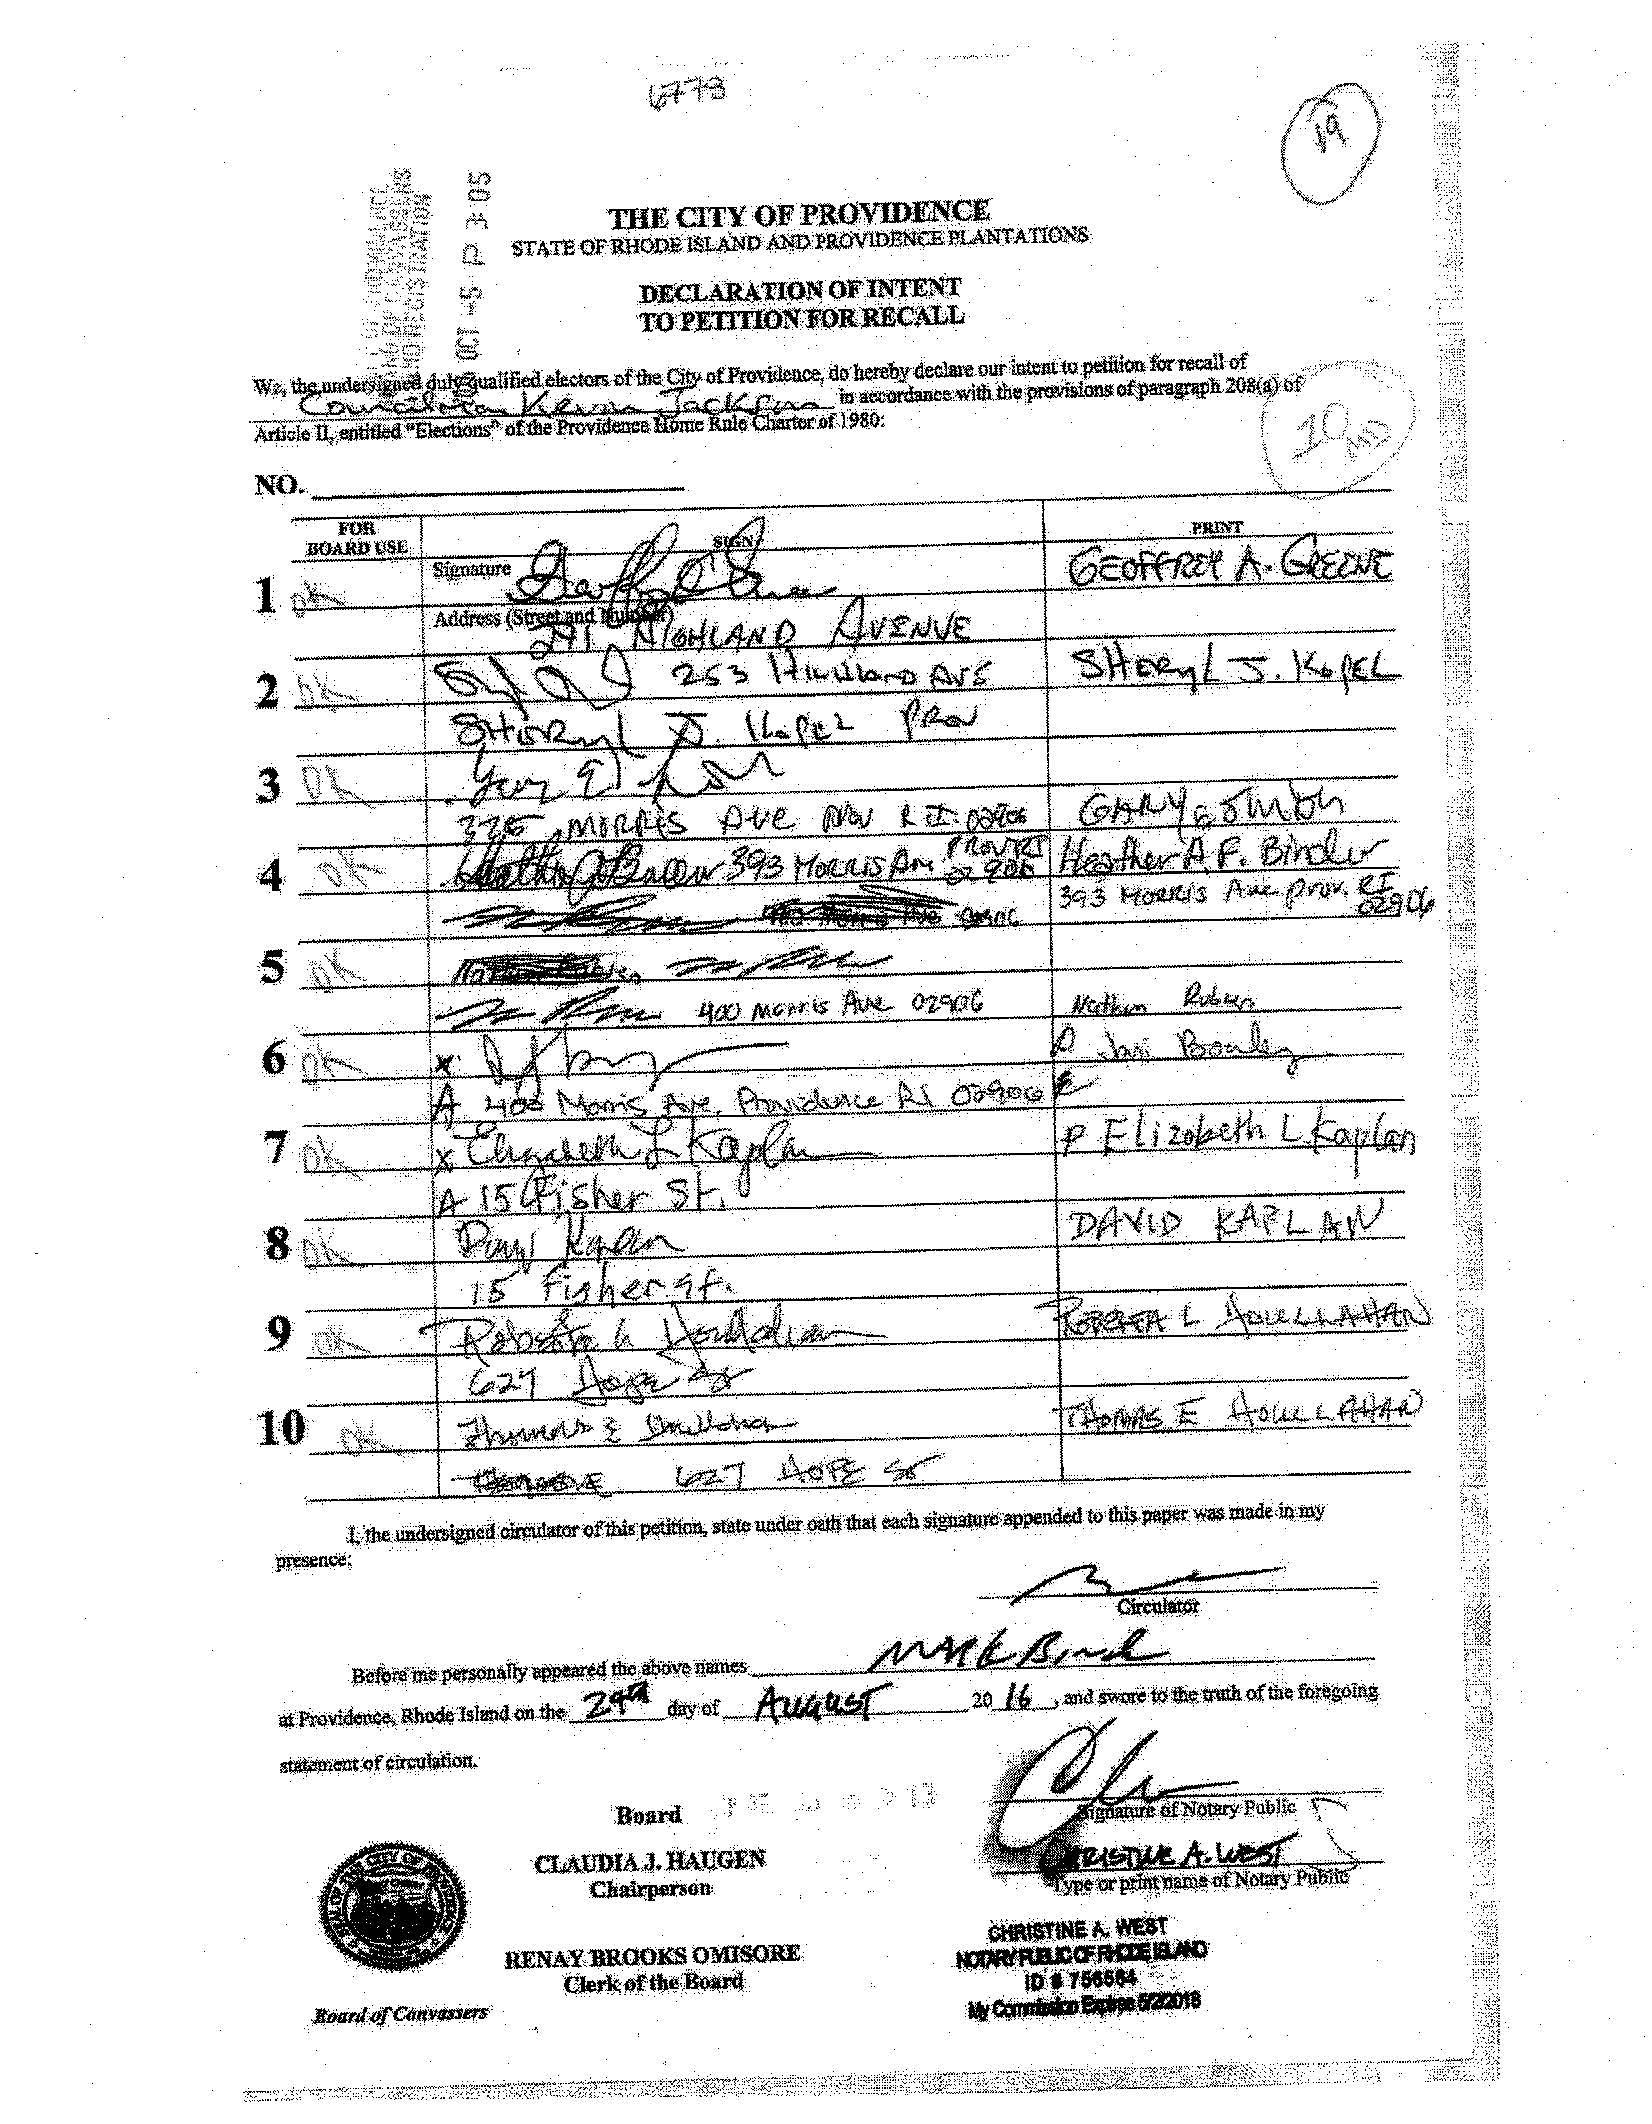 6773
19
OCT -5 P 3:05
THE CITY OF PROVIDENCE
STATE OF RHODE ISLAND AND PROVIDENCE PLANTATIONS
DECLARATION OF INTENT
TO PETITION FOR RECALL
We, the undersigned duly qualified electors of the City of Providence, do hereby declare our intent to petition for recall of
Councilman Kevin Jackson in accordance with the provisions of paragraph 208(a) of
Article II, entitled "Elections" of the Providence Home Rule Charter of 1980:
10
NO.
FOR BOARD USE SIGN PRINT
1 OK Signature GEOFFREY A. GREENE
Address (Street and Number)
241 HIGHLAND AVENUE
2 OK 253 Highland AVE SHERYL J. KOPEL
SHERYL J. KOPEL PROV
3 OK
335 MORRIS AVE PROV R.I. 02906 GARY E SMITH
4 OK 393 MORRIS Ave PROV RI 02906 Heather A.P. Binder
393 MORRIS Ave Prov. RI 02906
5 OK
400 Morris Ave 02906 Nathan Ruben
6 OK x P Jari
A 400 Morris Ave, Providence RI 02906
7 OK x Elizabeth L Kaplan P Elizabeth L Kaplan
A 15 Fisher St.
8 OK David Kaplan DAVID KAPLAN
15 Fisher St.
9 OK Roberta L Houllahan ROBERTA L HOULLAHAN
627 Hope St
10 OK Thomas E Houllahan THOMAS E HOULLAHAN
627 HOPE ST
I, the undersigned circulator of this petition, state under oath that each signature appended to this paper was made in my
presence:
Circulator
Before me personally appeared the above names MARK Binder
at Providence, Rhode Island on the 29th day of AUGUST 2016, and swore to the truth of the foregoing
statement of circulation.
Signature of Notary Public
Board
CHRISTINE A. WEST
Type or print name of Notary Public
CLAUDIA J. HAUGEN
Chairperson
CHRISTINE A. WEST
NOTARY PUBLIC OF RHODE ISLAND
ID # 756564
My Commission Expires 5/22/2018
RENAY BROOKS OMISORE
Clerk of the Board
Board of Canvassers